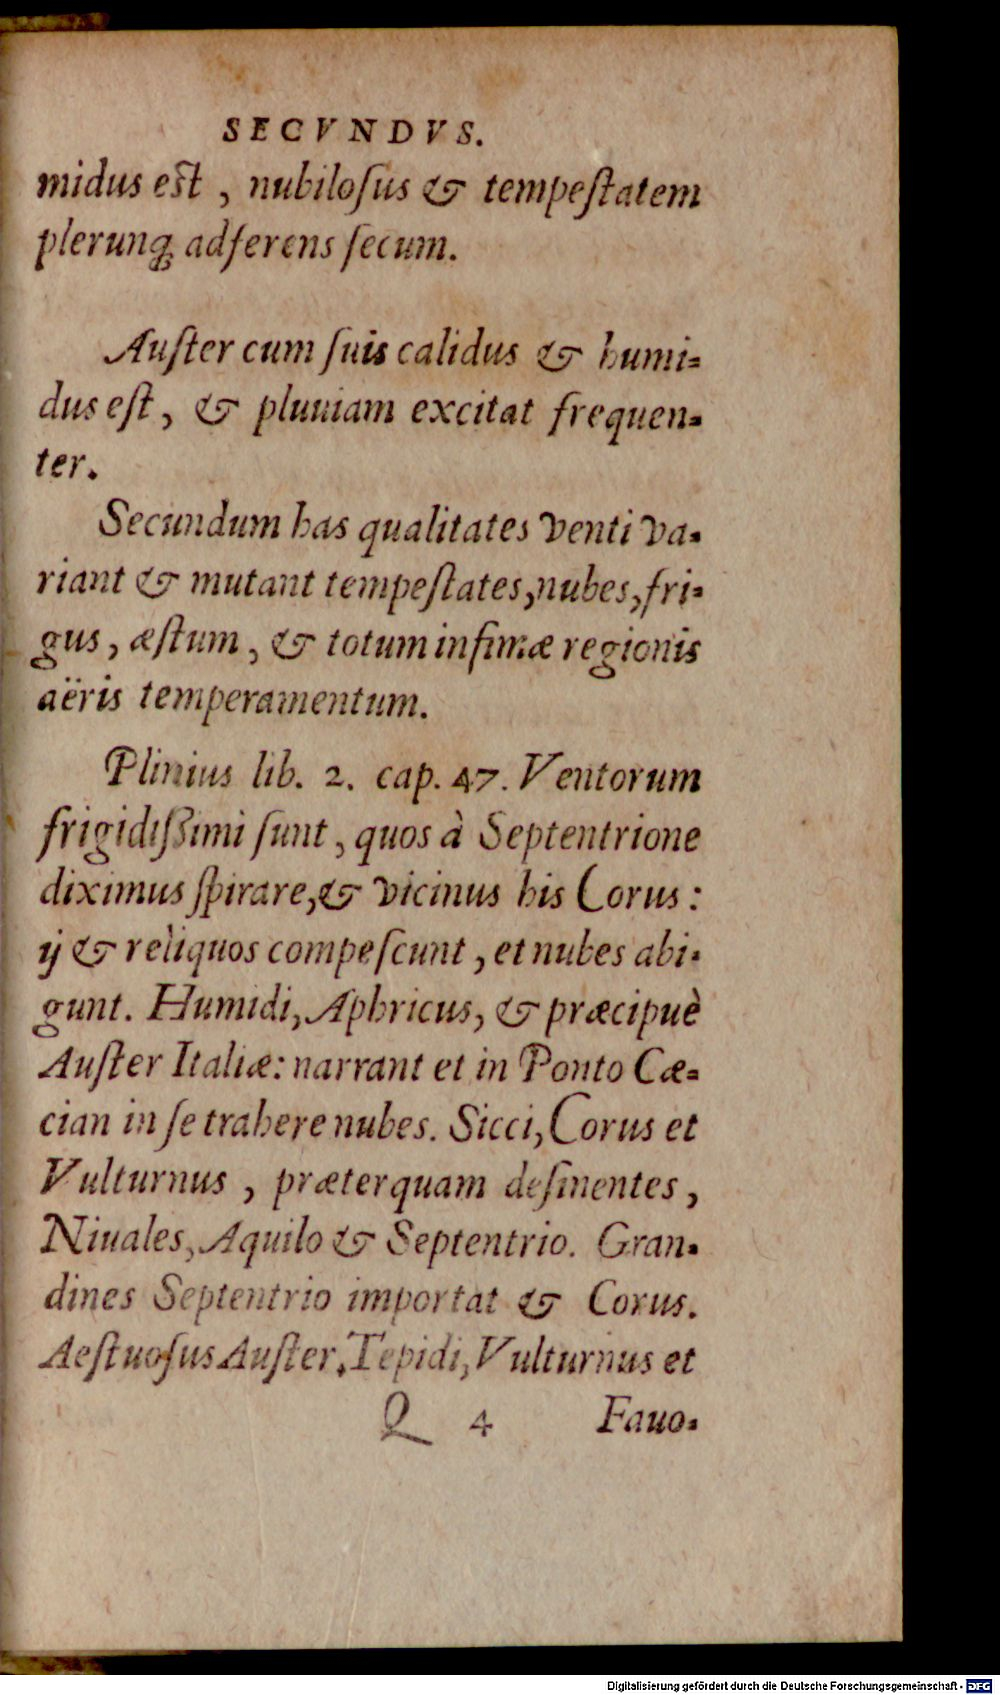 SECVNDVS.
midus est, nubilosus & tempestatem
plerunq; adferens secum.
Auster cum suis calidus & humi-
dus est, & pluuiam excitat frequen-
ter.
Secundum has qualitates venti va-
riant & mutant tempestates, nubes, fri-
gus, æstum, & totum infimæ regionis
aëris temperamentum.
Plinius lib. 2. cap. 47. Ventorum
frigidißimi sunt, quos à Septentrione
diximus spirare, & vicinus his Corus:
ij & reliquos compescunt, et nubes abi-
gunt. Humidi, Aphricus, & præcipuè
Auster Italiæ: narrant et in Ponto Cæ-
cian in se trahere nubes. Sicci, Corus et
Vulturnus, præterquam desinentes,
Niuales, Aquilo & Septentrio. Gran-
dines Septentrio importat & Corus.
Aestuosus Auster. Tepidi, Vulturnus et
Q 4 Fauo-
Digitalisierung gefördert durch die Deutsche Forschungsgemeinschaft - DFG